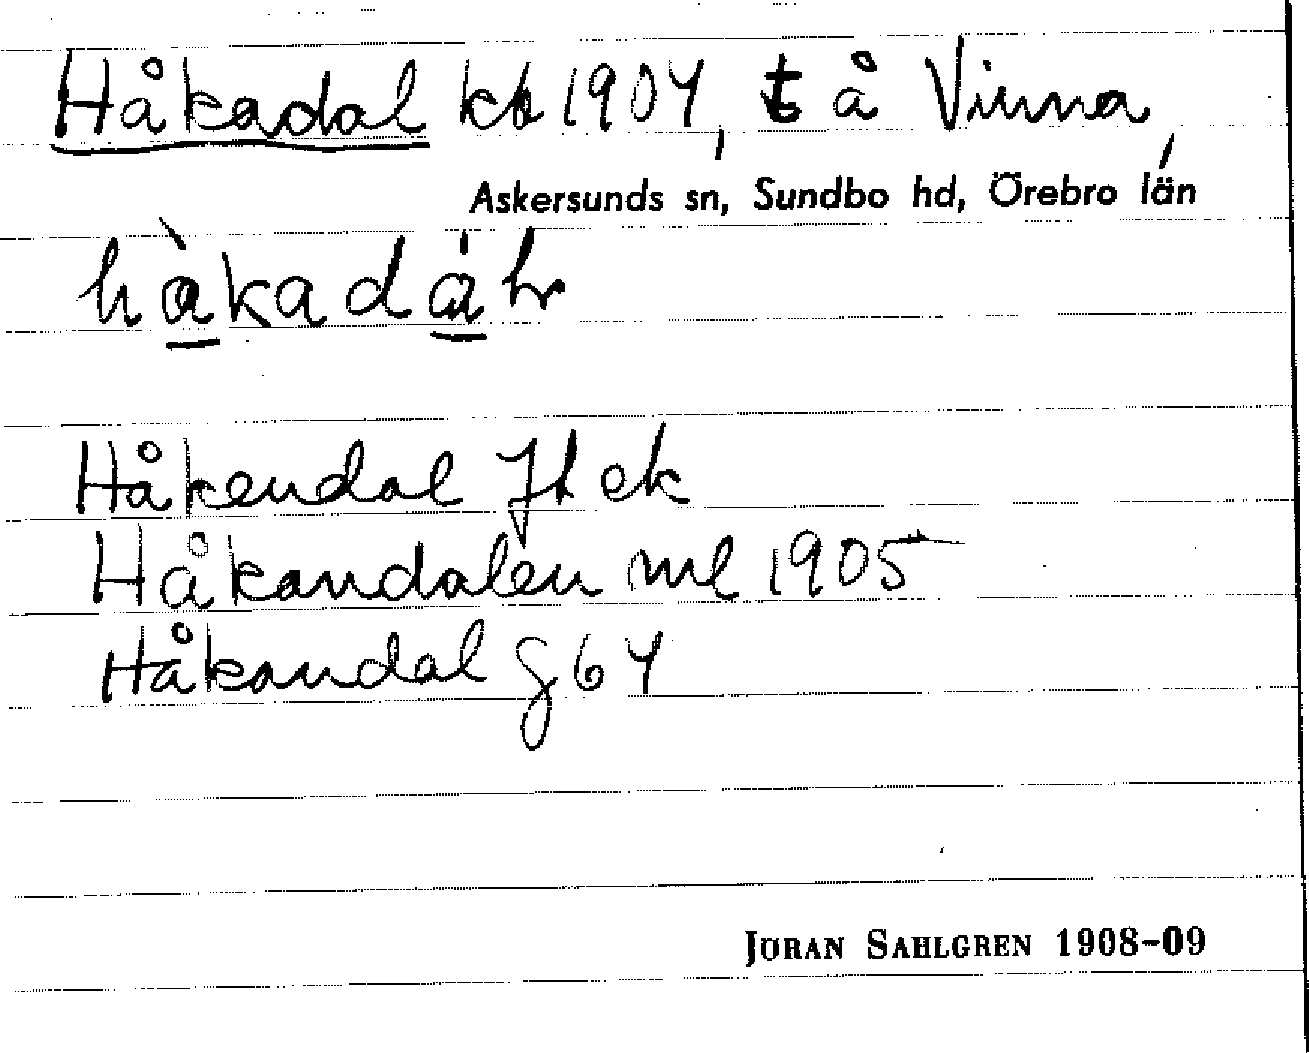 Håkadal kb 1904, t å Vinna,
Askersunds sn, Sundbo hd, Örebro län
hàkadál
Håkendal Jl ek
Håkandalen ml 1905
Håkandal g 64
JÖRAN SAHLGREN 1908-09